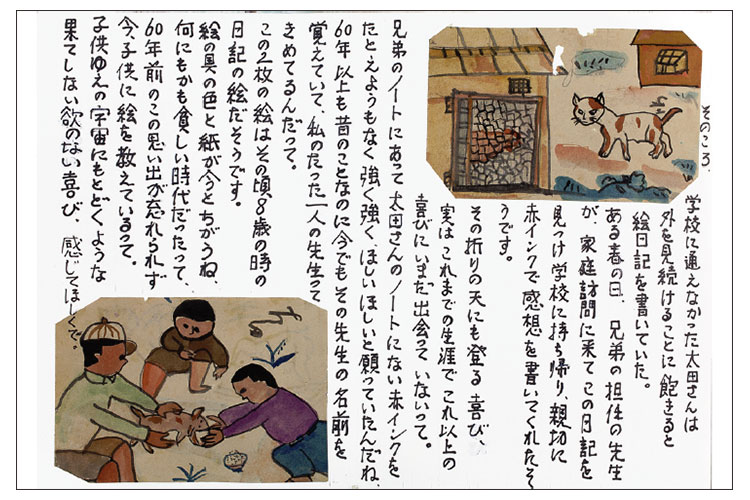 そのころ、
学校に通えなかった太田さんは
外を見続けることに飽きると
絵日記を書いていた。
ある春の日、兄弟の担任の先生
が、家庭訪問に来てこの日記を
見つけ学校に持ち帰り、親切に
赤インクで感想を書いてくれたそ
うです。
その折りの天にも登る喜び、
実はこれまでの生涯でこれ以上の
喜びにいまだ出会っていないって。
兄弟のノートにあって太田さんのノートにない赤インクを
たとえようもなく強く強く、ほしいほしいと願っていたんだね、
60年以上も昔のことなのに今でもその先生の名前を
覚えていて、私のたった一人の先生って
きめてるんだって。
この2枚の絵はその頃8歳の時の
日記の絵だそうです。
絵の具の色と紙が今とちがうね、
何にもかも貧しい時代だったって、
60年前のこの思い出が忘れられず
今、子供に絵を教えているって。
子供ゆえの宇宙にもとどくような
果てしない欲のない喜び、感じてほしくて。